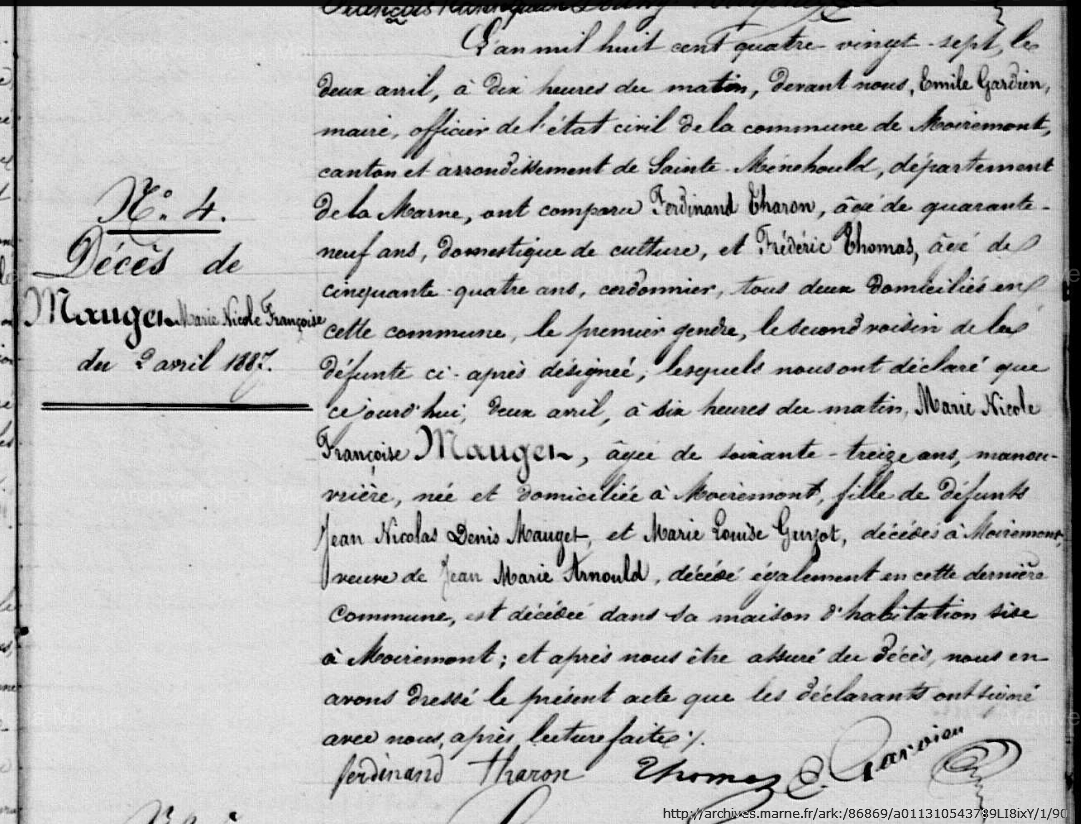 N° 4.
Décès de
Mauget Marie Nicole Françoise
du 2 avril 1887.
L'an mil huit cent quatre-vingt-sept, le
deux avril, à dix heures du matin, devant nous, Emile Gardien,
maire, officier de l'état civil de la commune de Moiremont,
canton et arrondissement de Sainte-Ménehould, département
de la Marne, ont comparu Ferdinand Tharon, âgé de quarante-
neuf ans, domestique de culture, et Frédéric Thomas, âgé de
cinquante-quatre ans, cordonnier, tous deux domiciliés en
cette commune, le premier gendre, le second voisin de la
défunte ci-après désignée, lesquels nous ont déclaré que
ce jourd'hui, deux avril, à six heures du matin, Marie Nicole
Françoise Mauget, âgée de soixante-treize ans, manou-
vrière, née et domiciliée à Moiremont, fille de défunts
Jean Nicolas Denis Mauget, et Marie Louise Guyot, décédés à Moiremont,
veuve de Jean Marie Arnould, décédé également en cette dernière
commune, est décédée dans sa maison d'habitation sise
à Moiremont ; et après nous être assuré du décès, nous en
avons dressé le présent acte que les déclarants ont signé
avec nous, après lecture faite ./.
ferdinand tharon Thomas E Gardien
http://archives.marne.fr/ark:/86869/a011310543789LI8ixY/1/90